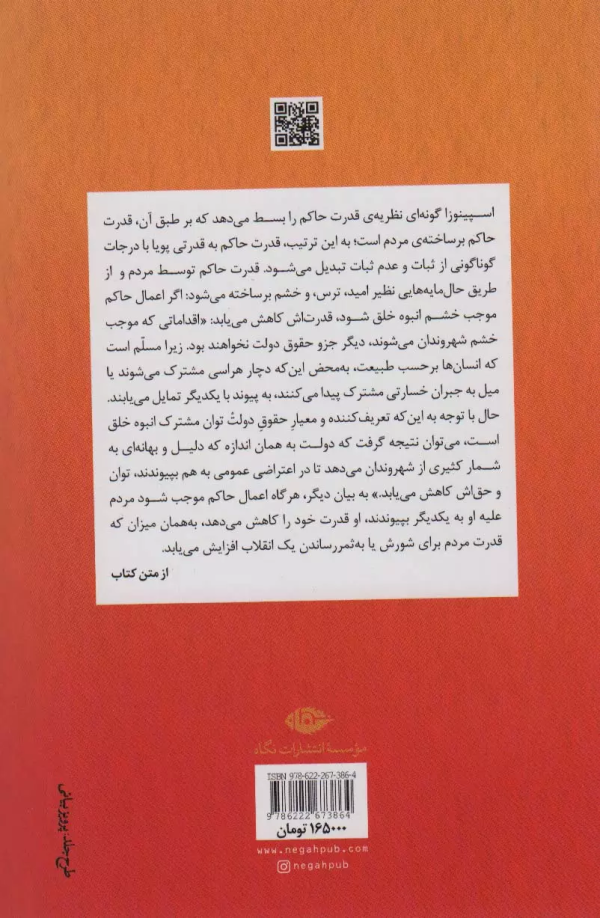 اسپینوزا گونه‌ای نظریه‌ی قدرت حاکم را بسط می‌دهد که بر طبق آن، قدرت
حاکم برساخته‌ی مردم است؛ به این ترتیب، قدرت حاکم به قدرتی پویا با درجات
گوناگونی از ثبات و عدم ثبات تبدیل می‌شود. قدرت حاکم توسط مردم و از
طریق حال‌مایه‌هایی نظیر امید، ترس، و خشم برساخته می‌شود: اگر اعمال حاکم
موجب خشم انبوه خلق شود، قدرت‌اش کاهش می‌یابد: «اقداماتی که موجب
خشم شهروندان می‌شوند، دیگر جزو حقوق دولت نخواهند بود. زیرا مسلّم است
که انسان‌ها برحسب طبیعت، به‌محض این‌که دچار هراسی مشترک می‌شوند یا
میل به جبران خسارتی مشترک پیدا می‌کنند، به پیوند با یکدیگر تمایل می‌یابند.
حال با توجه به این‌که تعریف‌کننده و معیارِ حقوقِ دولتْ توان مشترک انبوه خلق
است، می‌توان نتیجه گرفت که دولت به همان اندازه که دلیل و بهانه‌ای به
شمار کثیری از شهروندان می‌دهد تا در اعتراضی عمومی به هم بپیوندند، توان
و حق‌اش کاهش می‌یابد.» به بیان دیگر، هرگاه اعمال حاکم موجب شود مردم
علیه او به یکدیگر بپیوندند، او قدرت خود را کاهش می‌دهد، به‌همان میزان که
قدرت مردم برای شورش یا به‌ثمررساندن یک انقلاب افزایش می‌یابد.
از متن کتاب
مؤسسهٔ انتشارات نگاه
ISBN 978-622-267-386-4
9 786222 673864
۱۶۵۰۰۰ تومان
www.negahpub.com
negahpub
طرح جلد: پرویز بیانی